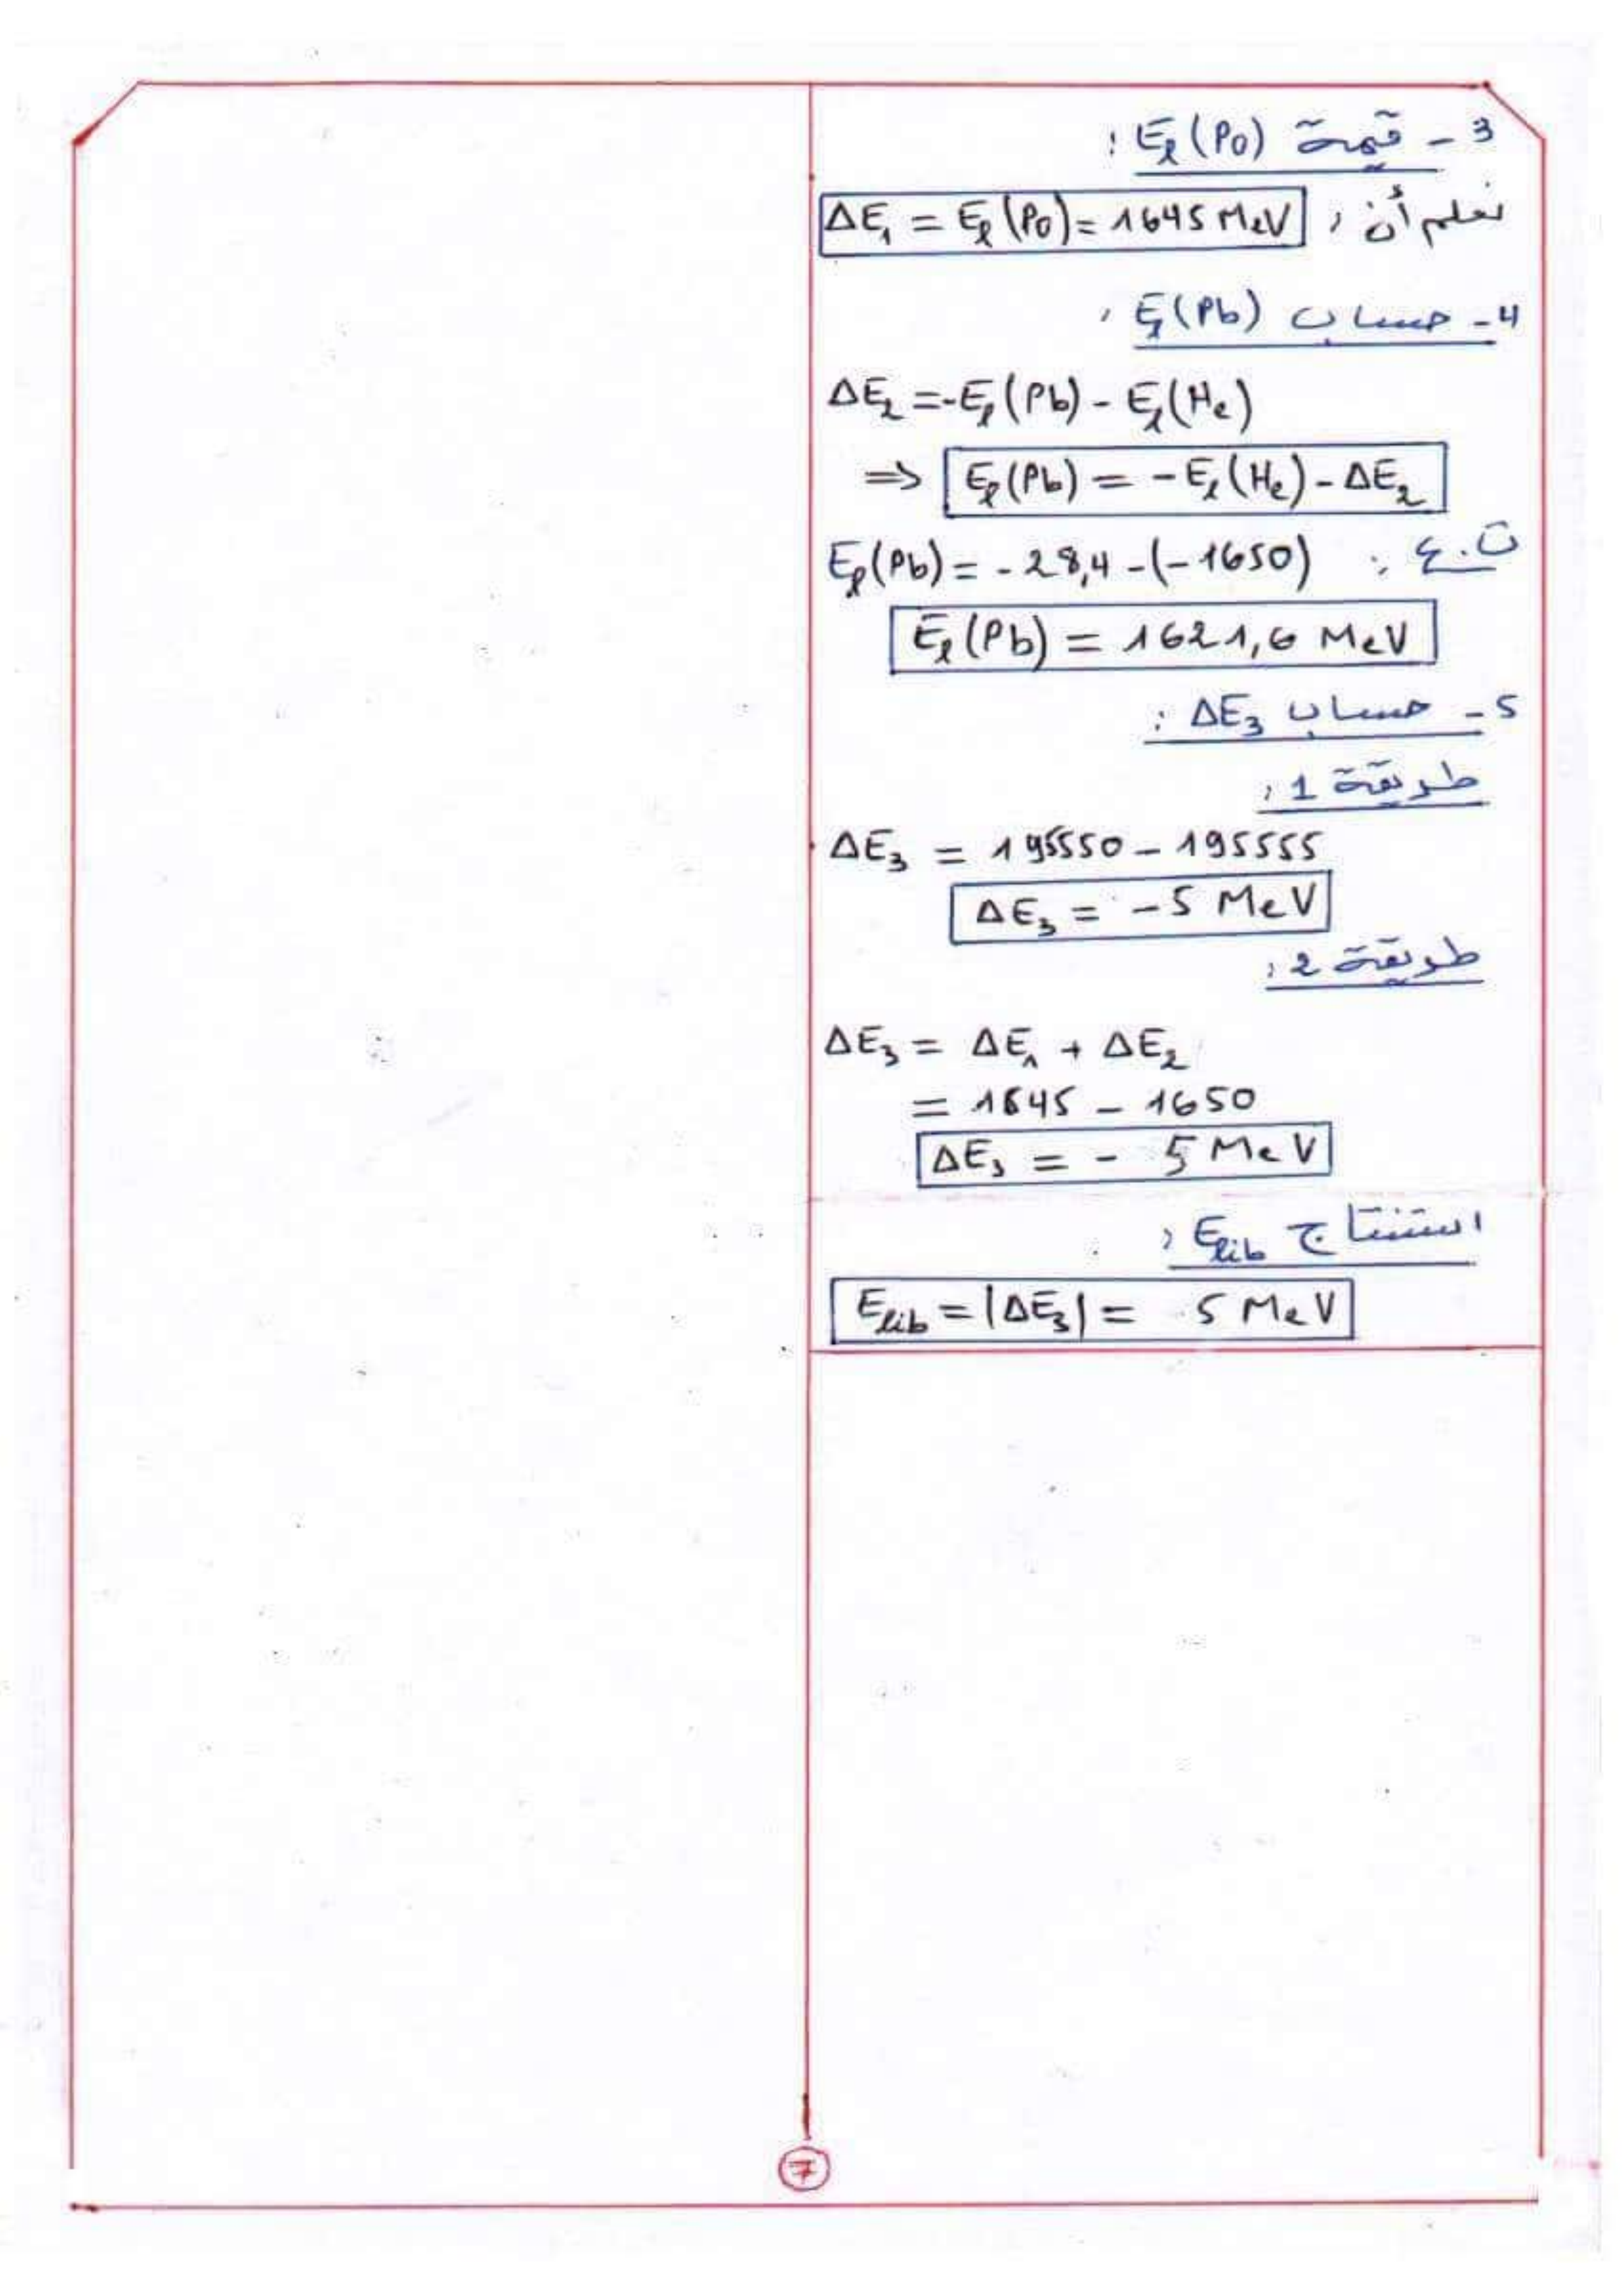 3 - قيمة E_l(Po) :
نعلم أن : ΔE₁ = E_l(Po) = 1645 MeV
4 - حساب E_l(Pb) :
ΔE₂ = -E_l(Pb) - E_l(He)
⇒ E_l(Pb) = -E_l(He) - ΔE₂
ت.ع : E_l(Pb) = -28,4 - (-1650)
E_l(Pb) = 1621,6 MeV
5 - حساب ΔE₃ :
طريقة 1 :
ΔE₃ = 195550 - 195555
ΔE₃ = -5 MeV
طريقة 2 :
ΔE₃ = ΔE₁ + ΔE₂
= 1645 - 1650
ΔE₃ = - 5 MeV
استنتاج E_lib :
E_lib = |ΔE₃| = 5 MeV
7